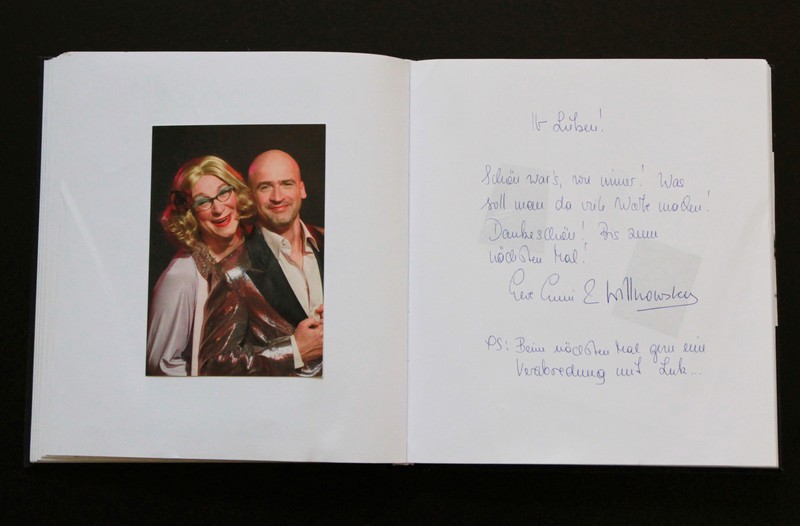 Ihr Lieben!
Schön war's, wie immer! Was
soll man da viele Worte machen!
Dankeschön! Bis zum
nächsten Mal!
Eure Emmi & Willnowsky
PS: Beim nächsten Mal gern eine
Verabredung mit